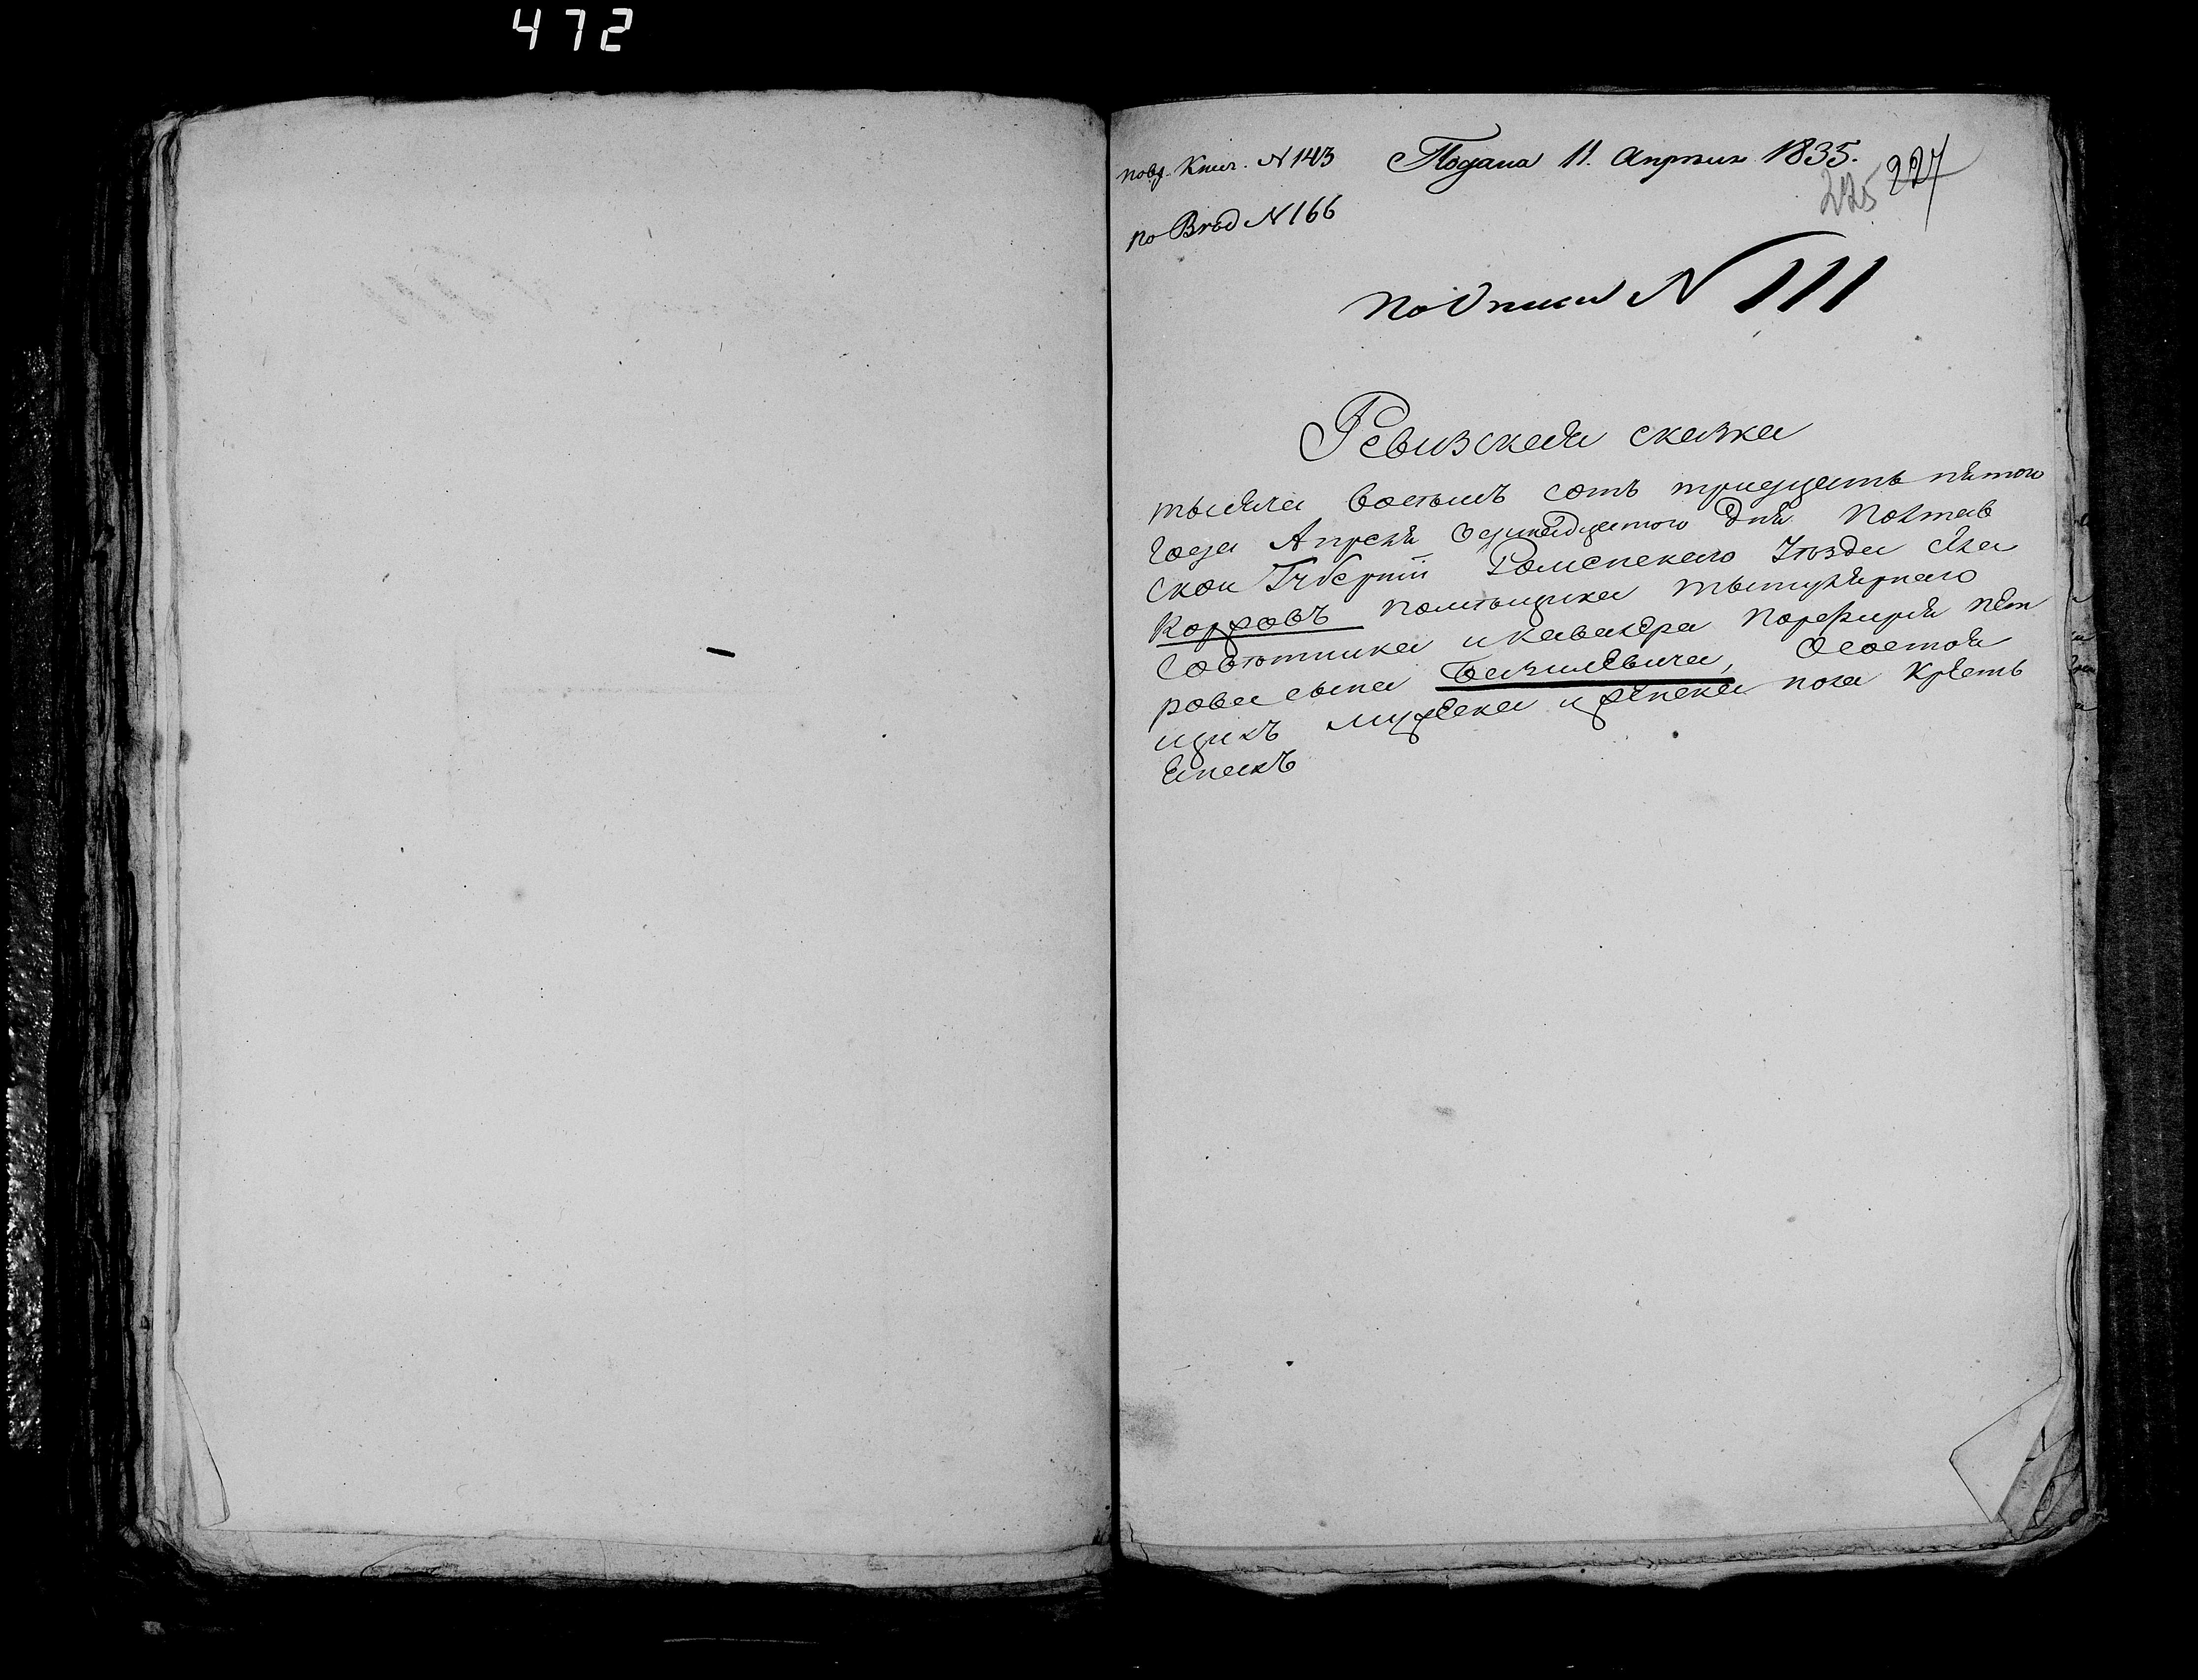 472
Подана 11. Апреля 1835.
227
225
N 143
по Вход N 166
по Описи N 111
Ревизская сказка
тысяча восемъ сотъ тридцать пятого
года Апреля одинадцатого дня Полтав
ской Губерніи Роменскаго Уезда села
помѣщика титулярнаго
Советника и кавалера Порфирія Пет
рова сына Базилевича, о состоя
щихъ мужеска и женска пола кресть
янахъ